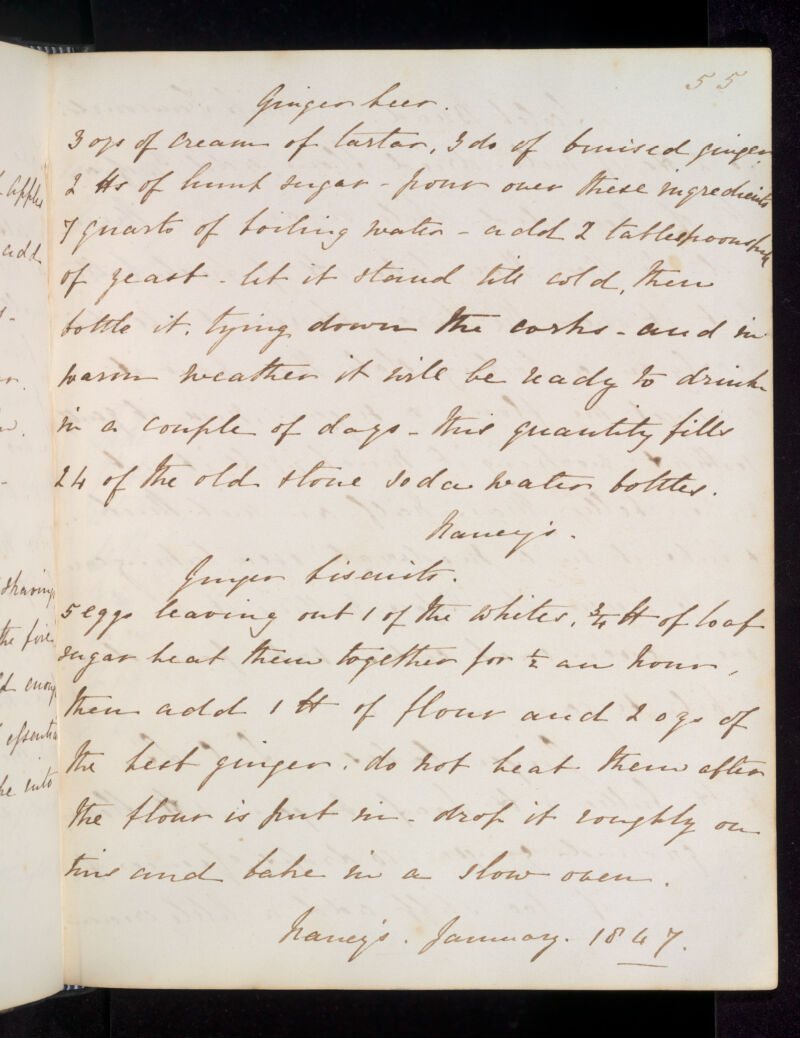 55
Ginger beer.
3 ozs of cream of tartar, 3 do of bruised ginger
2 lbs of lump sugar - pour over these ingredients
7 quarts of boiling water - add 2 tablespoonsful
of yeast - let it stand till cold, then
bottle it, tying down the corks - and in
warm weather it will be ready to drink
in a couple of days - this quantity fills
24 of the old stone soda water bottles.
Nancy's.
Ginger biscuits.
5 eggs leaving out 1 of the whites, 3/4 lb of loaf
sugar beat them together for 1/2 an hour,
then add 1 lb of flour and 2 ozs of
the best ginger. do not beat them after
the flour is put in - drop it roughly on
tins and bake in a slow oven.
Nancy's. January. 1847.
apples
add
shavings
the fire
essential
be into